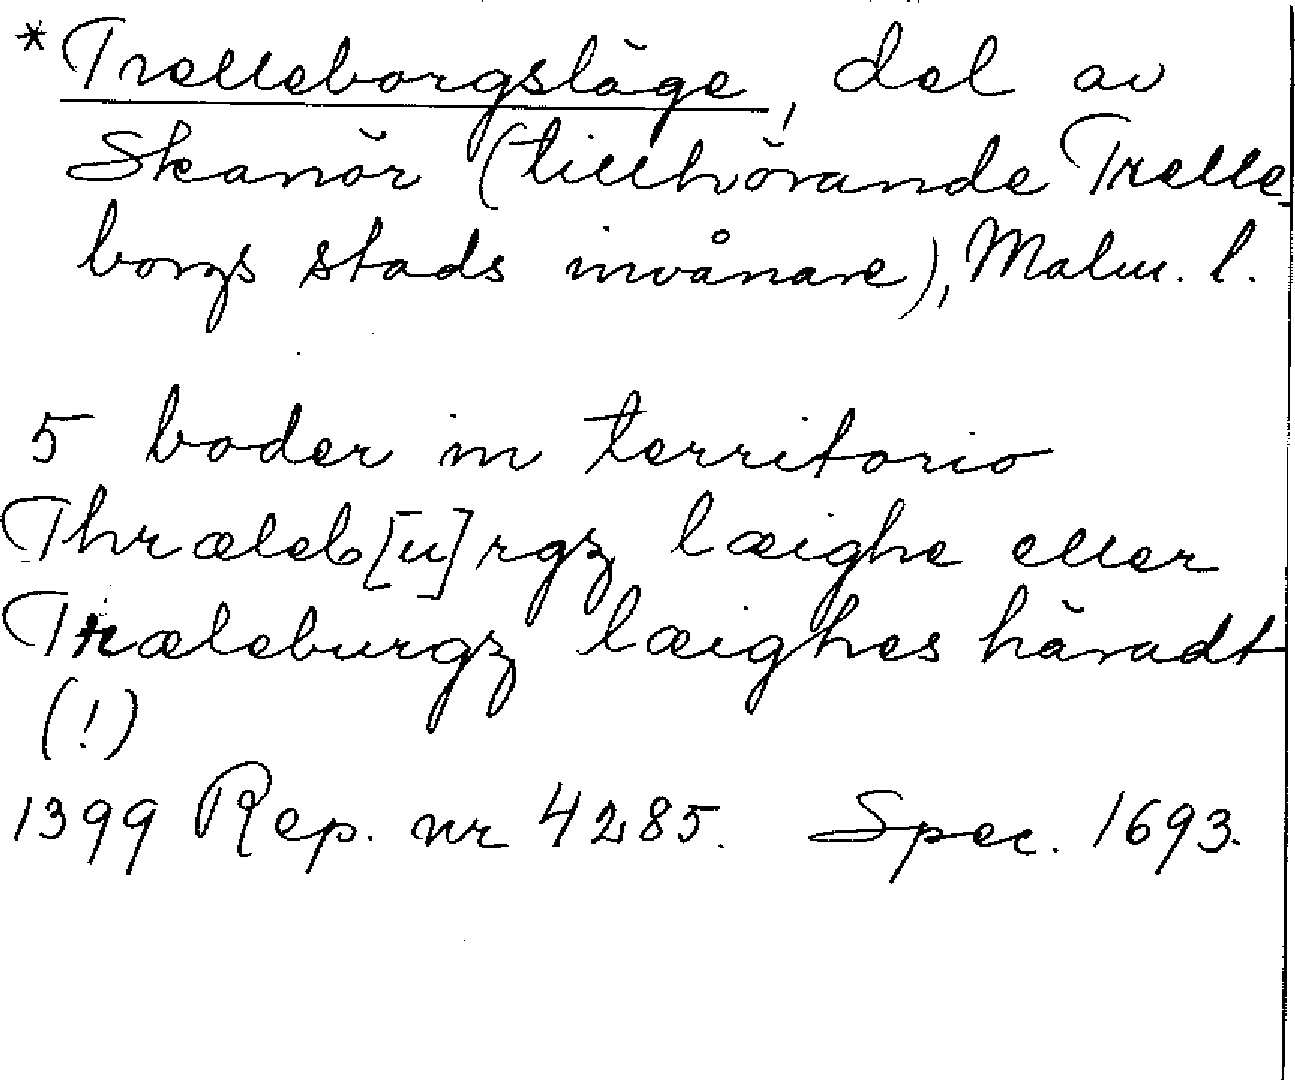 *Trelleborgsläge, del av
Skanör (tillhörande Trelle-
borgs stads invånare), Malm. l.
5 boder in territorio
Thræleb[u]rgz læighe eller
Træleburgz læighes häradt
(!)
1399 Rep. nr 4285. Spec. 1693.